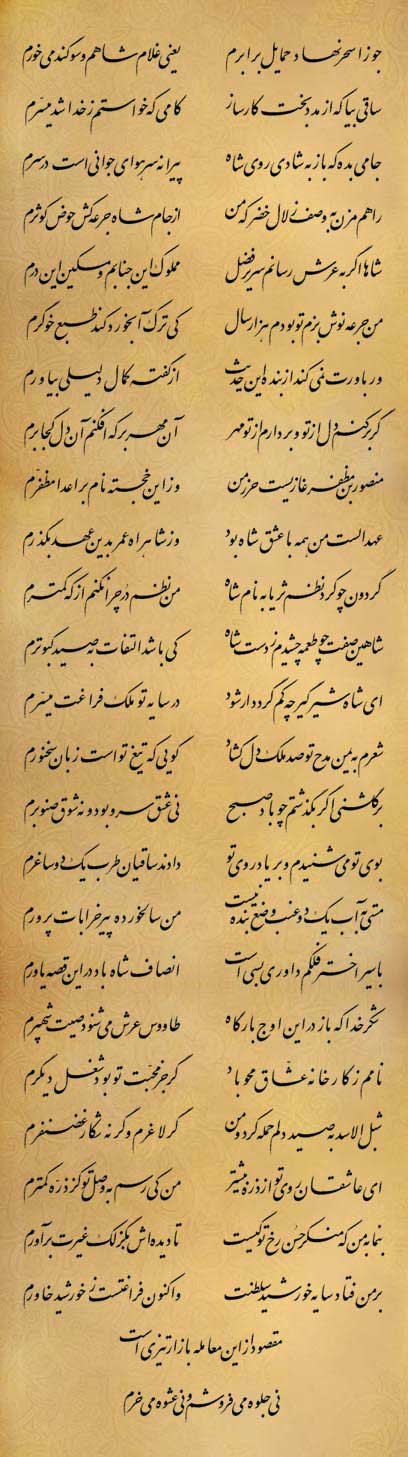 جوزا سحر نهاد حمایل برابرم یعنی غلام شاهم و سوگند می‌خورم
ساقی بیا که از مدد بخت کارساز کامی که خواستم ز خدا شد میسرم
جامی بده که باز به شادی روی شاه پیرانه سر هوای جوانی است در سرم
راهم مزن به وصف زلال خضر که من از جام شاه جرعه‌کش حوض کوثرم
شاها اگر به عرش رسانم سریر فضل مملوک این جنابم و مسکین این درم
من جرعه نوش بزم تو بودم هزار سال کی ترک آبخورد کند طبع خوگرم
ور باورت نمی‌کند از بنده این حدیث از گفته کمال دلیلی بیاورم
گر برکنم دل از تو و بردارم از تو مهر آن مهر بر که افکنم آن دل کجا برم
منصور بن مظفر غازیست حرز من و از این خجسته نام بر اعدا مظفرم
عهد الست من همه با عشق شاه بود و از شاهراه عمر بدین عهد بگذرم
گردون چو کرد نظم ثریا به نام شاه من نظم در چرا نکنم از که کمترم
شاهین صفت چو طعمه چشیدم ز دست شاه کی باشد التفات به صید کبوترم
ای شاه شیرگیر چه کم گردد ار شود در سایه تو ملک فراغت میسرم
شعرم به یمن مدح تو صد ملک دل گشاد گویی که تیغ تو است زبان سخنورم
بر گلشنی اگر بگذشتم چو باد صبح نی عشق سرو بود و نه شوق صنوبرم
بوی تو می‌شنیدم و بر یاد روی تو دادند ساقیان طرب یک دو ساغرم
مستی به آب یک دو عنب وضع بنده نیست من سالخورده پیر خرابات پرورم
با سیر اختر فلکم داوری بسی است انصاف شاه باد در این قصه یاورم
شکر خدا که باز در این اوج بارگاه طاووس عرش می‌شنود صیت شهپرم
نامم ز کارخانه عشاق محو باد گر جز محبت تو بود شغل دیگرم
شبل الاسد به صید دلم حمله کرد و من گر لاغرم وگرنه شکار غضنفرم
ای عاشقان روی تو از ذره بیشتر من کی رسم به وصل تو کز ذره کمترم
بنما به من که منکر حسن رخ تو کیست تا دیده‌اش به گزلک غیرت برآورم
بر من فتاد سایه خورشید سلطنت و اکنون فراغتست ز خورشید خاورم
مقصود از این معامله بازارتیزی است
نی جلوه می‌فروشم و نی عشوه می‌خرم